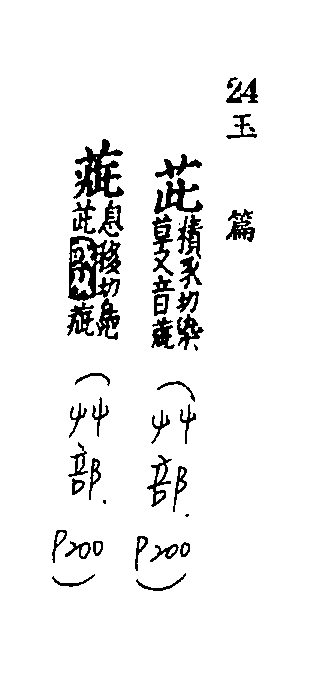 24玉篇
茈積豕切染
草又音
(艸部.P200)
息移切鳧
茈
(艸部.P200)